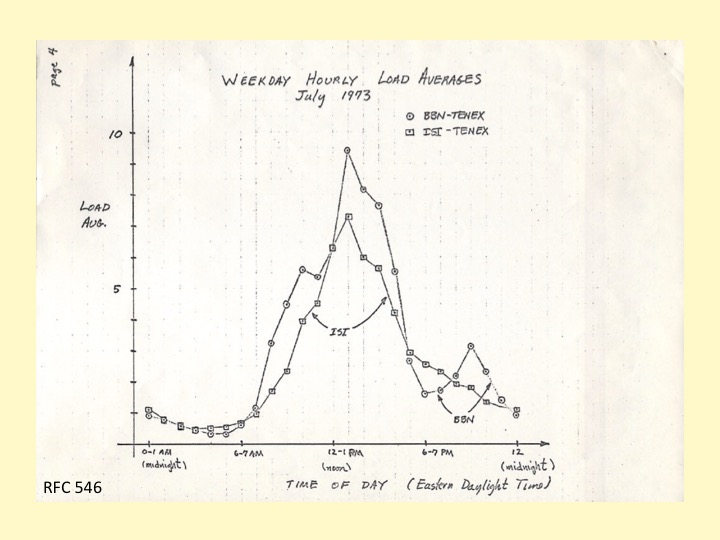 page 4
WEEKDAY HOURLY LOAD AVERAGES
July 1973
BBN-TENEX
ISI-TENEX
10
LOAD
AVG.
5
ISI
BBN
0-1 AM 6-7 AM 12-1 PM 6-7 PM 12
(midnight) (noon) (midnight)
TIME OF DAY (Eastern Daylight Time)
RFC 546